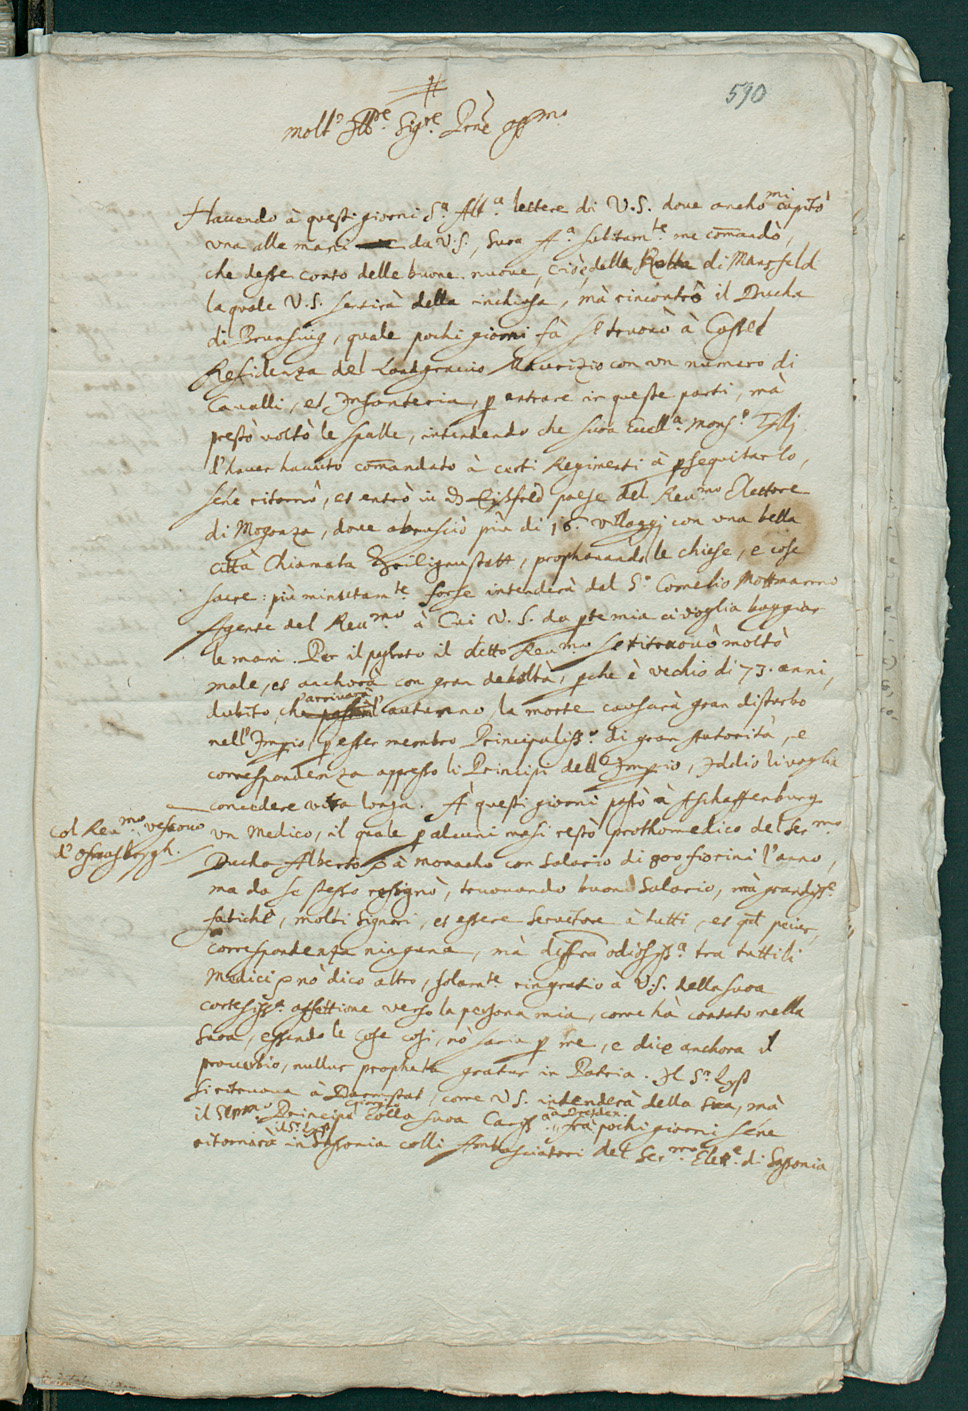 590
#
molt.o Ill.re Sig.re P̃rne oss.mo
Havendo à questi giorni S.a Alt.a lettere di V.S. dove ancho mi capitò
una alle mani da V.S., Sua A.a subitam.te me comandò,
che desse conto delle buone nuove, cioè delle Rotta di Mansfeld
la quale V.S. sentirà della inchiosa, mà rincontrò il Ducha
di Brunsuig, quale pochi giorni fà se trovò à Cassel
Residenza del Landgravio Maurizio con un numero di
Cavalli, et Infanteria, p entrare in queste parti, mà
prestò voltò le spalle, intendendo che sua Eccell.a Mons.r Tilli
d'haver havuto comandato à certi Regimenti à psequitarlo,
sene ritornò, et entrò in paese del Reu.mo Elettore
di Mogonza, dove abrusciò più di 16. villaggi con una bella
città Chiamata Heilignustatt, prophanando le chiese, e cose
sacre: più minutam.te forse intenderà del S.r Cornelio Mottmanno
Agente del Reu.mo à Cui V.S. da pte mia ci voglia baggiar
le mani. Per il passato il detto Reu.mo se ritrovò moltò
male, et anchora con gran deboltà, pche è vechio di 73. anni,
dubito, che arrivarà l'autunno, la morte causarà gran disturbo
nell'Imp̃rio, p esser membro Principaliss.o di gran Autorità, e
correspondenza appresso li Principi dell'Imp̃rio, Iddio li voglia
concedere vita longa. A questi giorni passò à Aschaffenburg
col Reu.mo vescovo
d'Osnasbrugh.
un Medico, il quale p alcuni masi restò prothomedico del Ser.mo
Ducha Alberto à monacho con salario di 800 fiorini l'anno,
ma da se stesso resignò, truovando buono Salario, mà grandiss.e
fatiche, molti Signori, et essere Servitore à tutti, et q̃d peius,
correspondenza ninguna, mà differa odiosiss.a tra tutti li
Medici nò dico altro, solam.te ringratio à V.S. della sua
cortesiss.a affettione verso la persona mia, come hà contato nella
Sua, essendo le cose cosi, nò saria p me, e dice anchora il
proverbio, nullus propheta gratus in Patria. Il S.r Lyst
si ritruova à Darmstat, come V.S. intenderà della sua, mà
il Ser.mo Principe Giorgio colla sua Cariss.a à Dresden. frà pochi giorni sene
ritornarà il S.r Lyst in Sassonia colli Ambasciatori del Ser.mo Elett.e di Sassonia